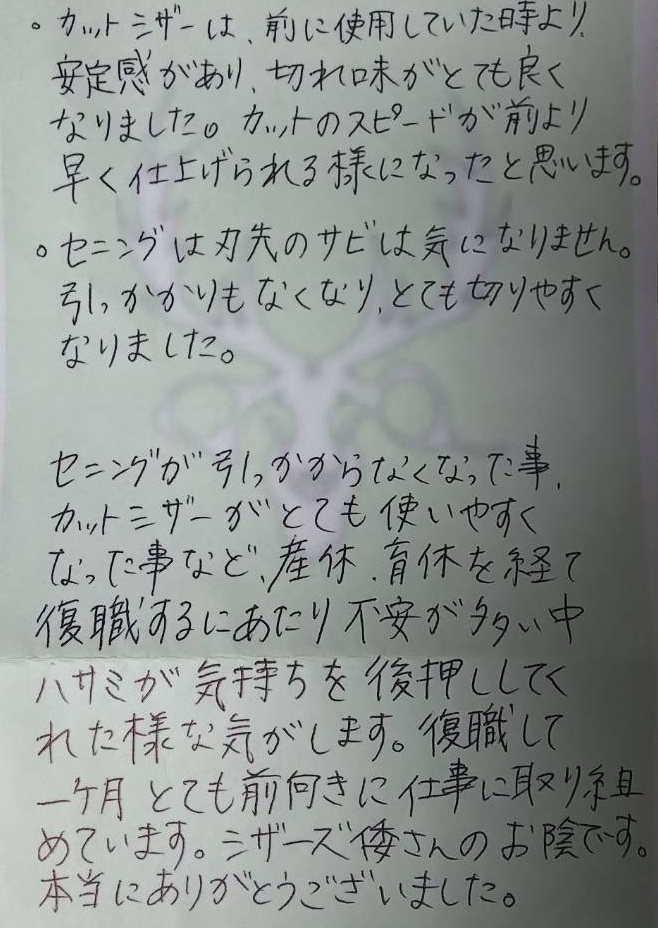 。カットシザーは、前に使用していた時より、
安定感があり、切れ味がとても良く
なりました。カットのスピードが前より
早く仕上げられる様になったと思います。
。セニングは刃先のサビは気になりません。
引っかかりもなくなり、とても切りやすく
なりました。
セニングが引っかからなくなった事、
カットシザーがとても使いやすく
なった事など、産休、育休を経て
復職するにあたり不安が多い中
ハサミが気持ちを後押ししてく
れた様な気がします。復職して
一ケ月とても前向きに仕事に取り組
めています。シザーズ倭さんのお陰です。
本当にありがとうございました。